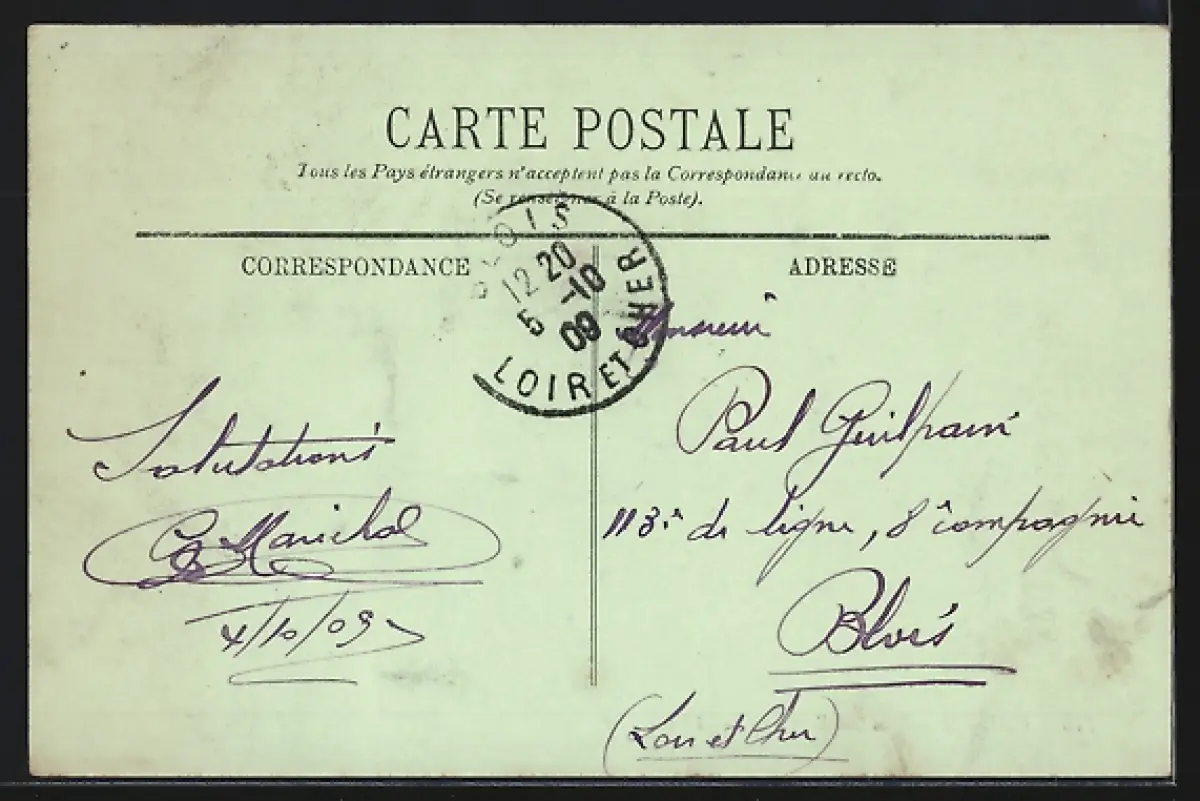 CARTE POSTALE
Tous les Pays étrangers n'acceptent pas la Correspondance au recto.
(Se renseigner à la Poste).
CORRESPONDANCE
BLOIS
12 20
5 -10
09
LOIR ET CHER
Salutations
Marichal
4/10/09
ADRESSE
Monsieur
Paul Guilpain
113e de ligne, 8e compagnie
Blois
(Loir et Cher)